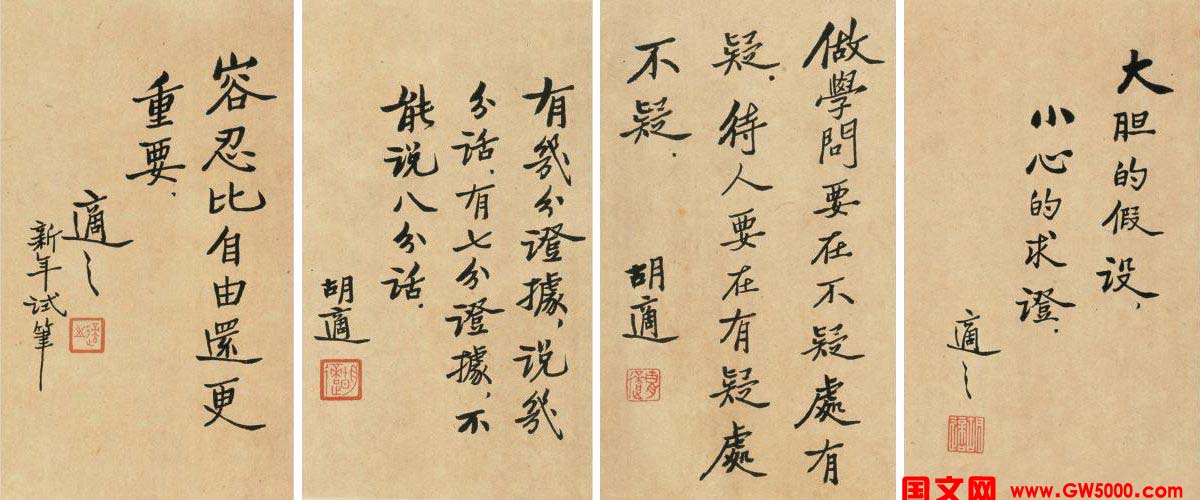 容忍比自由還更
重要.
適之
新年试筆
有幾分證據,说幾
分话,有七分證據,不
能说八分话.
胡適
做學問要在不疑處有
疑.待人要在有疑處
不疑.
胡適
大胆的假设,
小心的求證.
適之
国文网 www.GW5000.com